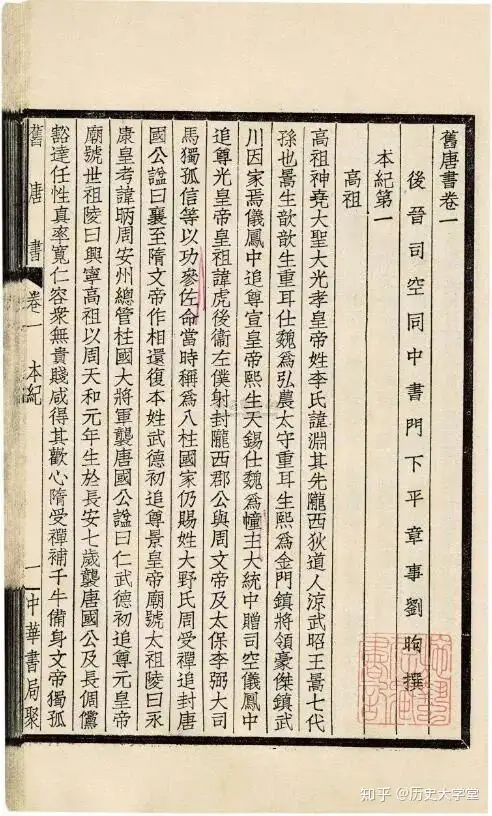 舊唐書卷一
後晉司空同中書門下平章事劉昫撰
本紀第一
高祖
高祖神堯大聖大光孝皇帝姓李氏諱淵其先隴西狄道人涼武昭王暠七代
孫也暠生歆歆生重耳仕魏爲弘農太守重耳生熙爲金門鎮將領豪傑鎮武
川因家焉儀鳳中追尊宣皇帝熙生天錫仕魏爲幢主大統中贈司空儀鳳中
追尊光皇帝皇祖諱虎後衞左僕射封隴西郡公與周文帝及太保李弼大司
馬獨孤信等以功參佐命當時稱爲八柱國家仍賜姓大野氏周受禪追封唐
國公諡曰襄至隋文帝作相還復本姓武德初追尊景皇帝廟號太祖陵曰永
康皇考諱昞周安州總管柱國大將軍襲唐國公諡曰仁武德初追尊元皇帝
廟號世祖陵曰興寧高祖以周天和元年生於長安七歲襲唐國公及長倜儻
豁達任性真率寬仁容衆無貴賤咸得其歡心隋受禪補千牛備身文帝獨孤
舊唐書 卷一 本紀 一 中華書局聚
知乎 @历史大学堂